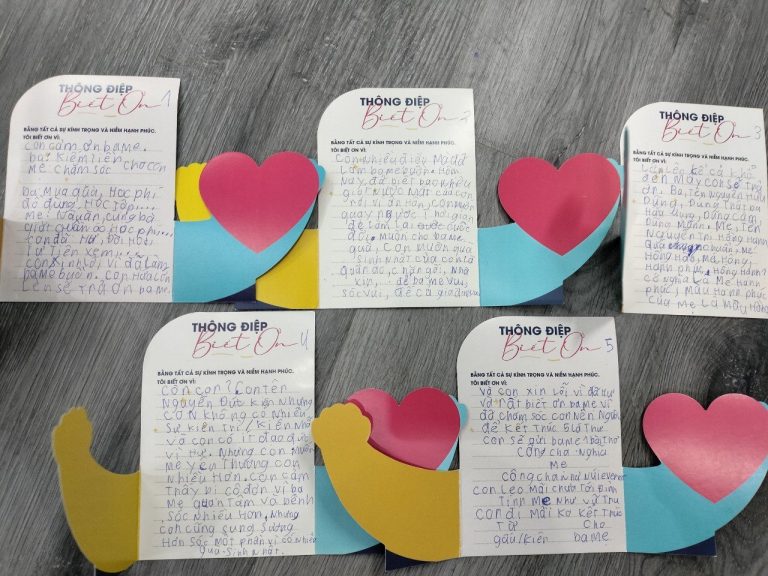 THÔNG ĐIỆP
Biết Ơn 1
BẰNG TẤT CẢ SỰ KÍNH TRỌNG VÀ NIỀM HẠNH PHÚC.
TÔI BIẾT ƠN VÌ:
Con cảm ơn ba mẹ.
ba! Kiếm tiền
mẹ chăm sóc cho con
ba mua gấu, Học phí
đồ dùng, Học tập...
mẹ: Nấu ăn, cùng ba
giặt quần áo Học phí...
con đã Hư, Đòi Hỏi
Tự tiện xem
con xin lỗi vì đã làm
ba mẹ buồn. Con Hứa lớn
Lên sẽ trả ơn ba mẹ
THÔNG ĐIỆP
Biết Ơn 2
BẰNG TẤT CẢ SỰ KÍNH TRỌNG VÀ NIỀM HẠNH PHÚC.
TÔI BIẾT ƠN VÌ:
Con nhiều điều Mà đã
Làm ba mẹ buồn. Hôm
Nay, đã biết bao nhiêu
giọt nước mắt của con
rơi vì ân Hận, con muốn
quay ngược thời gian
để làm lại được cuộc
đời. Muốn cho ba mẹ
quà, con muốn quà
sinh nhật của con là
quần áo, chăn gối, Nhà
kín,... để ba mẹ vui,
sóc vui, để cả gia đình vui
THÔNG ĐIỆP
Biết Ơn 3
BẰNG TẤT CẢ SỰ KÍNH TRỌNG VÀ NIỀM HẠNH PHÚC.
TÔI BIẾT ƠN VÌ:
đen Mấy con sẽ trả
ơn. Ba, Tên Nguyễn Hữu
Dũng, Dũng Thật ba
Hữu dũng, Dũng cảm
Dũng Mãnh. Mẹ, Tên
Nguyễn Thị Hồng Hạnh
Hồng Hào, Má Hồng,
Hạnh phúc. Hồng Hạnh?
có nghĩa là Mẹ Hạnh
phúc, Màu Hạnh phúc
của Mẹ Là Mây Hồng
THÔNG ĐIỆP
Biết Ơn 4
BẰNG TẤT CẢ SỰ KÍNH TRỌNG VÀ NIỀM HẠNH PHÚC.
TÔI BIẾT ƠN VÌ:
Còn con? Con tên
Nguyễn Đức Kiên Nhưng
CON không có Nhiều
sự kiên trì/kiên Nhẫn
và con có ít đạo đức
vì Hư. Nhưng con muốn
Mẹ yêu Thương con
Nhiều Hơn. Con cảm
Thấy bị cô đơn vì ba
Mẹ quan Tâm và bênh
Sóc Nhiều Hơn. Nhưng
con cũng sung sướng
Hơn Sóc Một phần vì có nhiều
quà sinh Nhật.
THÔNG ĐIỆP
Biết Ơn 5
BẰNG TẤT CẢ SỰ KÍNH TRỌNG VÀ NIỀM HẠNH PHÚC.
TÔI BIẾT ƠN VÌ:
Và con xin Lỗi vì đã Hư
Và rất biết ơn ba mẹ vì
đã chăm sóc con Nên Người
để kết Thúc 5 lá Thư
Con sẽ gửi ba mẹ 1 bài Thơ
Công cha Nghĩa
Mẹ
Công cha như Núi everest
con Leo Mãi chưa Tới Đỉnh
Tình Mẹ Như vũ Trụ
con đi Mãi Ko kết Thúc
Từ Cho
gấu/kiên ba mẹ